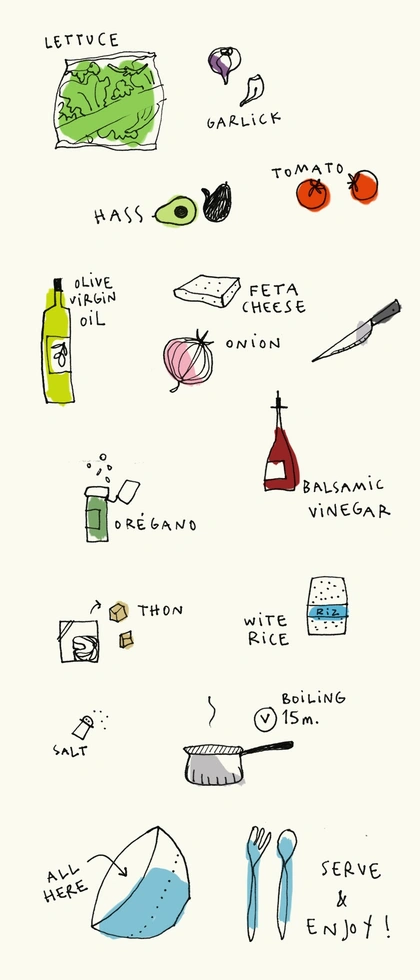 LETTUCE
GARLICK
TOMATO
HASS
OLIVE
VIRGIN
OIL
FETA
CHEESE
ONION
BALSAMIC
VINEGAR
ORÉGANO
THON
WITE
RICE
RIZ
BOILING
15m.
SALT
ALL
HERE
SERVE
&
ENJOY!